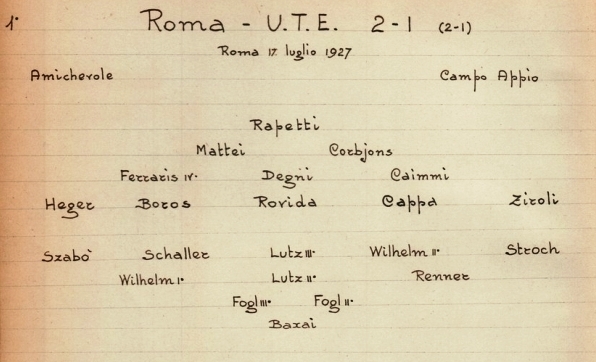 1° Roma - U.T.E. 2-1 (2-1)
Roma 17 luglio 1927
Amichevole Campo Appio
Rapetti
Mattei Corbjons
Ferraris IV. Degni Caimmi
Heger Boros Rovida Cappa Ziroli
Szabò Schaller Lutz III. Wilhelm II. Stroch
Wilhelm I. Lutz II. Renner
Fogl III. Fogl II.
Baxai